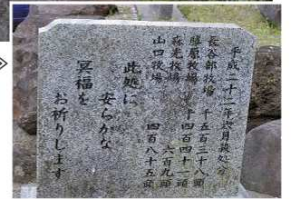 平成二十二年 処分
長谷部牧場 千五百三十八頭
藤原牧場 千四百四十一頭
牧場 六百九頭
山口牧場 四百八十五頭
此処に
安らかな
冥福を
お祈りします